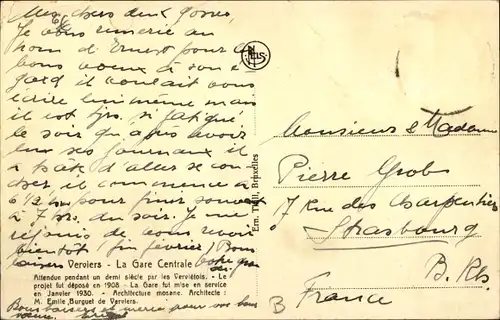 Mes chers deux gosses,
Je vous remercie au
nom d'Ernest pour les
bons voeux à son é-
gard il voulait vous
écrire lui même mais
il est tjrs. si fatigué
le soir qu'après avoir
lu ses journaux il
a hâte d'aller se cou-
cher, il commence à
6 1/2 hrs pour finir souvent
à 7 hrs. du soir. Je me
réjouis de vous revoir
bientôt (fin février) Bons
baisers
Verviers - La Gare Centrale
Attendue pendant un demi siècle par les Verviétois. - Le
projet fut déposé en 1908 - La Gare fut mise en service
en Janvier 1930. - Architecture mosane. Architecte :
M. Emile Burguet de Verviers.
Bons baisers et merci pour vos bons
NELS
Ern. Thill, Bruxelles
Monsieur & Madame
Pierre Grob
7 Rue des Charpentiers
Strasbourg
B. Rh.
France
B